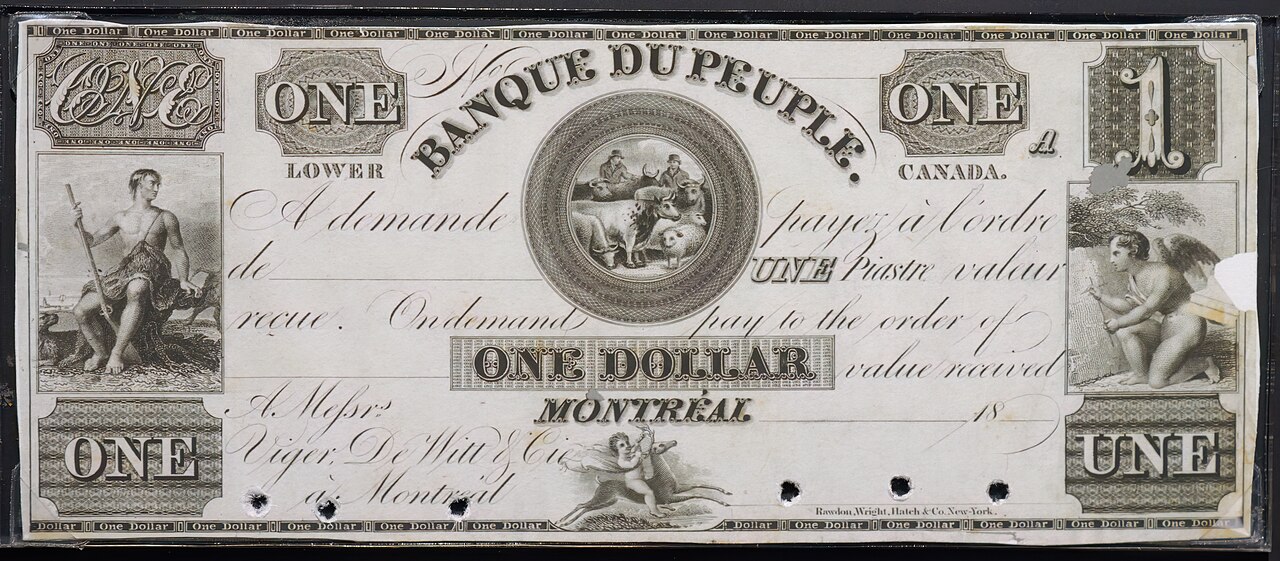 One Dollar One Dollar One Dollar One Dollar One Dollar One Dollar One Dollar One Dollar One Dollar One Dollar One Dollar One Dollar One Dollar
ONE ONE Nº BANQUE DU PEUPLE. ONE A 1
LOWER CANADA.
A demande payez à l'ordre
de UNE Piastre valeur
reçue. On demand pay to the order of
ONE DOLLAR value received
A Messrs MONTRÉAL 18
ONE Viger, De Witt & Cie UNE
à Montréal
Rawdon, Wright, Hatch & Co. New-York.
Dollar One Dollar One Dollar One Dollar One Dollar One Dollar One Dollar One Dollar One Dollar One Dollar One Dollar